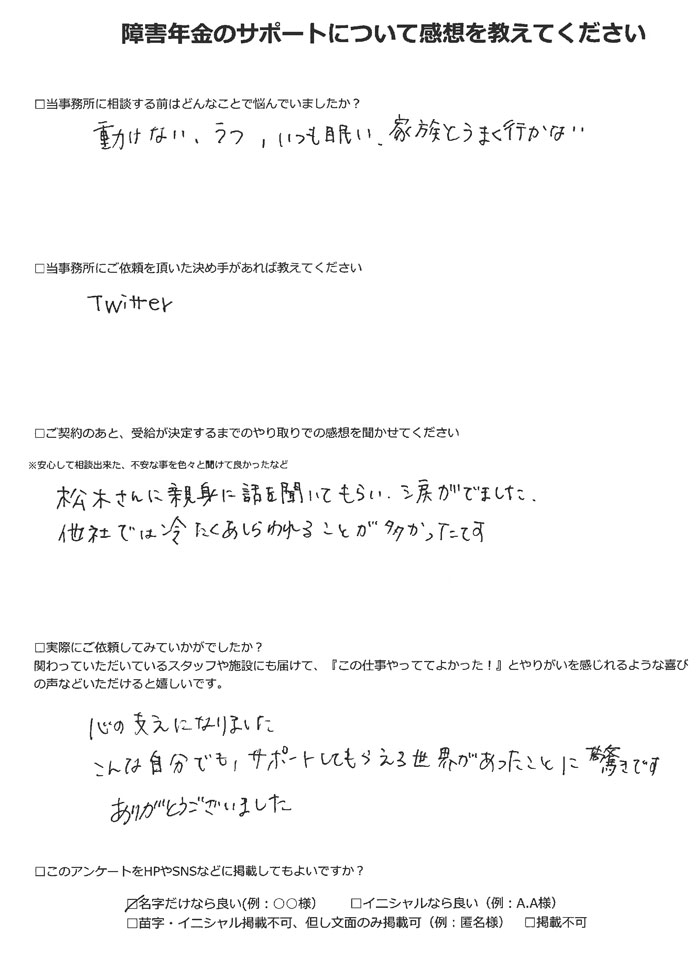 障害年金のサポートについて感想を教えてください
□当事務所に相談する前はどんなことで悩んでいましたか？
動けない、うつ、いつも眠い、家族とうまく行かない
□当事務所にご依頼を頂いた決め手があれば教えてください
Twitter
□ご契約のあと、受給が決定するまでのやり取りでの感想を聞かせてください
※安心して相談出来た、不安な事を色々と聞けて良かったなど
松木さんに親身に話を聞いてもらい、涙がでました、
他社では冷たくあしらわれることが多かったです
□実際にご依頼してみていかがでしたか？
関わっていただいているスタッフや施設にも届けて、『この仕事やっててよかった！』とやりがいを感じれるような喜び
の声などいただけると嬉しいです。
心の支えになりました
こんな自分でも、サポートしてもらえる世界があったことに驚きです
ありがとうございました
□このアンケートをHPやSNSなどに掲載してもよいですか？
☑名字だけなら良い(例：○○様） □イニシャルなら良い（例：A.A様）
□苗字・イニシャル掲載不可、但し文面のみ掲載可（例：匿名様） □掲載不可